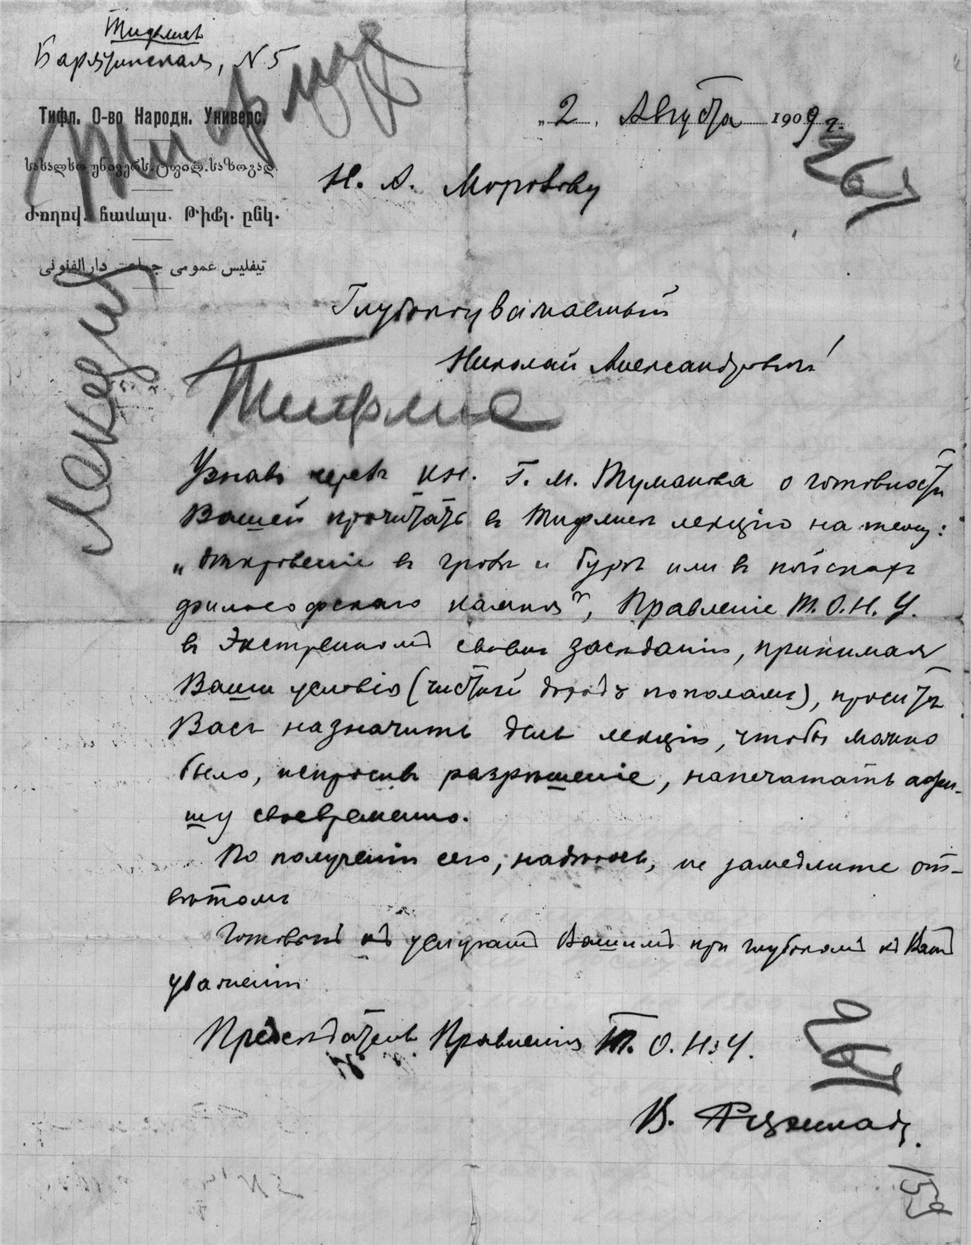 Тифлисъ
Барятинская, N 5
Тифл. О-во Народн. Универс.
სახალხო უნივერს. ტფილ. საზოგად.
Ժողով. համալս. Թիֆլ. ընկ.
تیفلیس عمومی جماعت دارالفنونی
„2„ Августа 1909 г.
Н. А. Морозову
Глубокоуважаемый
Николай Александровичъ!
Тифлис
Узнавъ черезъ кн. Г. М. Туманова о готовности
Вашей прочитать въ Тифлисѣ лекцію на тему:
„Откровеніе въ грозѣ и бурѣ или въ поискахъ
философскаго камня", Правленіе Т. О. Н. У.
въ Экстренномъ своемъ засѣданіи, принимая
Ваши условія (чистый доходъ пополамъ), проситъ
Васъ назначить день лекціи, чтобы можно
было, испросивъ разрѣшеніе, напечатать афи-
шу своевременно.
По полученіи сего, надѣюсь, не замедлите от-
вѣтомъ
Готовый къ услугамъ Вашимъ при глубокомъ къ Вамъ
уваженіи
Предсѣдатель Правленія Т. О. Н. У.
В.